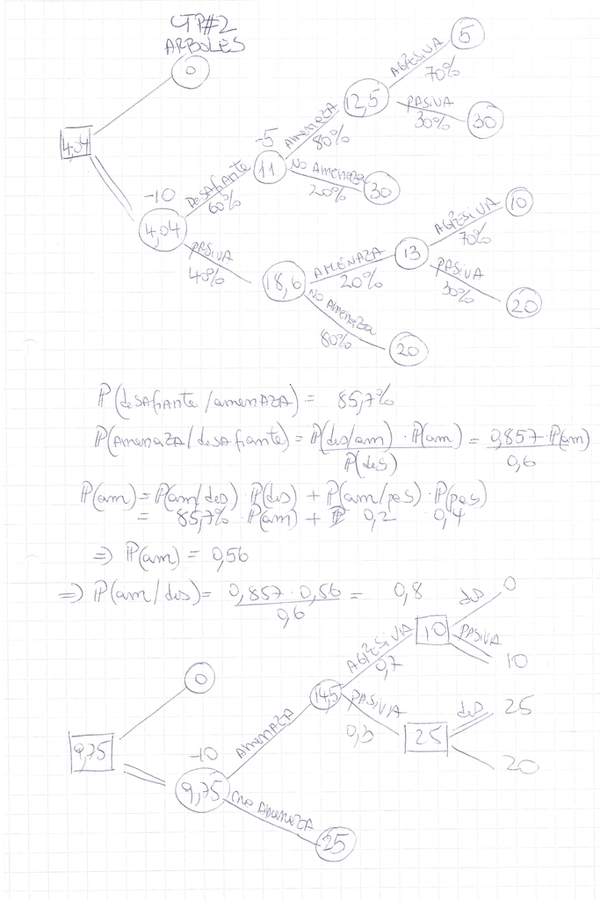 CTP#2
ARBOLES
0
5
AGRESIVA
70%
12,5
PASIVA
30%
30
AMENAZA
80%
-5
11
NO AMENAZA
20%
30
4,04
DESAFIANTE
60%
-10
4,04
PASIVA
40%
18,6
AMENAZA
20%
13
AGRESIVA
70%
10
PASIVA
30%
20
NO AMENAZA
80%
20
P(desafiante/amenaza) = 85,7%
P(amenaza/desafiante) = P(des/am) · P(am) = 0,857 · P(am)
P(des) 0,6
P(am) = P(am/des) · P(des) + P(am/pas) · P(pas)
= 85,7% · P(am) + 0,2 0,4
⇒ P(am) = 0,56
⇒ P(am/des) = 0,857 · 0,56 = 0,8
0,6
0
9,75
-10
9,75
AMENAZA
14,5
AGRESIVA
0,7
10
des
0
PASIVA
10
PASIVA
0,3
25
des
25
20
NO AMENAZA
25